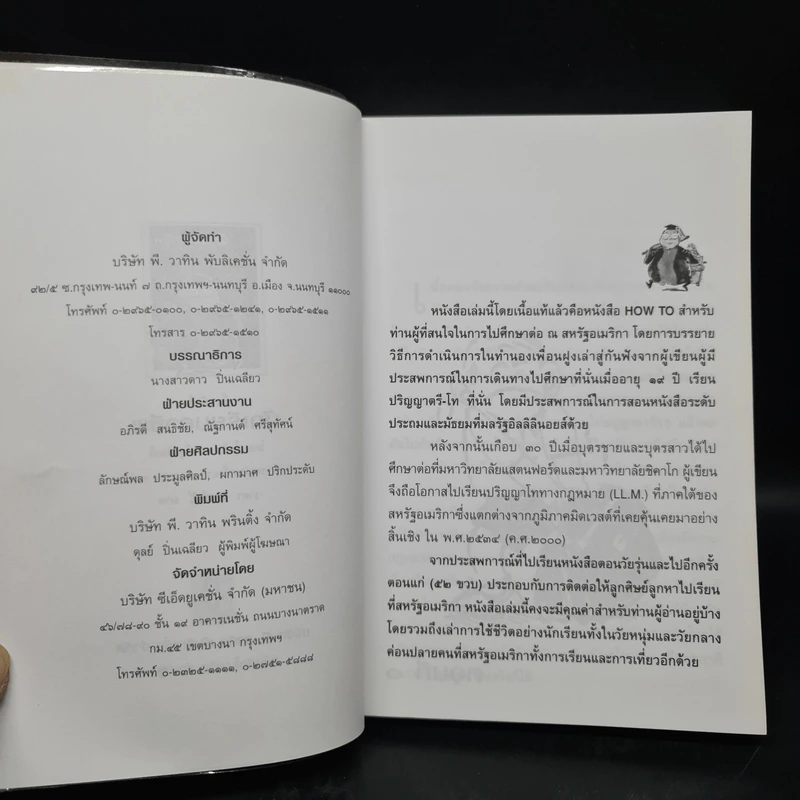 ผู้จัดทำ
บริษัท พี. วาทิน พับลิเคชั่น จำกัด
๙๒/๕ ซ.กรุงเทพ-นนท์ ๗ ถ.กรุงเทพฯ-นนทบุรี อ.เมือง จ.นนทบุรี ๑๑๐๐๐
โทรศัพท์ ๐-๒๙๖๕-๐๑๐๐, ๐-๒๙๖๕-๑๒๔๑, ๐-๒๙๖๕-๑๕๑๑
โทรสาร ๐-๒๙๖๕-๑๕๑๐
บรรณาธิการ
นางสาวดาว ปิ่นเฉลียว
ฝ่ายประสานงาน
อภิรดี สนธิชัย, ณัฐกานต์ ศรีสุทัศน์
ฝ่ายศิลปกรรม
ลักษณ์พล ประมูลศิลป์, ผกามาศ ปริกประดับ
พิมพ์ที่
บริษัท พี. วาทิน พรินติ้ง จำกัด
ดุลย์ ปิ่นเฉลียว ผู้พิมพ์ผู้โฆษณา
จัดจำหน่ายโดย
บริษัท ซีเอ็ดยูเคชั่น จำกัด (มหาชน)
๔๖/๗๘-๙๐ ชั้น ๑๙ อาคารเนชั่น ถนนบางนาตราด
กม.๔๕ เขตบางนา กรุงเทพฯ
โทรศัพท์ ๐-๒๓๒๕-๑๑๑๑, ๐-๒๗๕๑-๕๘๘๘
หนังสือเล่มนี้โดยเนื้อแท้แล้วคือหนังสือ HOW TO สำหรับ
ท่านผู้ที่สนใจในการไปศึกษาต่อ ณ สหรัฐอเมริกา โดยการบรรยาย
วิธีการดำเนินการในทำนองเพื่อนฝูงเล่าสู่กันฟังจากผู้เขียนผู้มี
ประสพการณ์ในการเดินทางไปศึกษาที่นั่นเมื่ออายุ ๑๙ ปี เรียน
ปริญญาตรี-โท ที่นั่น โดยมีประสพการณ์ในการสอนหนังสือระดับ
ประถมและมัธยมที่มลรัฐอิลลิลินอยส์ด้วย
หลังจากนั้นเกือบ ๓๐ ปีเมื่อบุตรชายและบุตรสาวได้ไป
ศึกษาต่อที่มหาวิทยาลัยแสตนฟอร์ดและมหาวิทยาลัยชิคาโก ผู้เขียน
จึงถือโอกาสไปเรียนปริญญาโททางกฎหมาย (LL.M.) ที่ภาคใต้ของ
สหรัฐอเมริกาซึ่งแตกต่างจากภูมิภาคมิดเวสต์ที่เคยคุ้นเคยมาอย่าง
สิ้นเชิง ใน พ.ศ.๒๕๓๔ (ค.ศ.๒๐๐๐)
จากประสพการณ์ที่ไปเรียนหนังสือตอนวัยรุ่นและไปอีกครั้ง
ตอนแก่ (๕๒ ขวบ) ประกอบกับการติดต่อให้ลูกศิษย์ลูกหาไปเรียน
ที่สหรัฐอเมริกา หนังสือเล่มนี้คงจะมีคุณค่าสำหรับท่านผู้อ่านอยู่บ้าง
โดยรวมถึงเล่าการใช้ชีวิตอย่างนักเรียนทั้งในวัยหนุ่มและวัยกลาง
ค่อนปลายคนที่สหรัฐอเมริกาทั้งการเรียนและการเที่ยวอีกด้วย